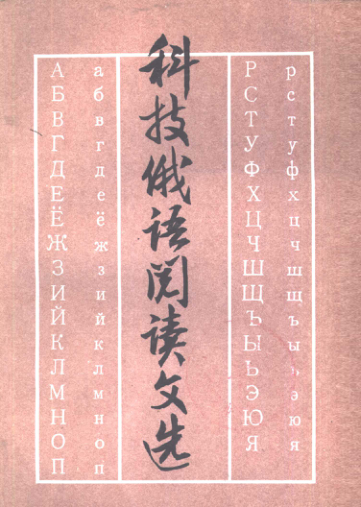 А
Б
В
Г
Д
Е
Ё
Ж
З
И
Й
К
Л
М
Н
О
П
а
б
в
г
д
е
ё
ж
з
и
й
к
л
м
н
о
п
科技俄语阅读文选
Р
С
Т
У
Ф
Х
Ц
Ч
Ш
Щ
Ъ
Ы
Ь
Э
Ю
Я
р
с
т
у
ф
х
ц
ч
ш
щ
ъ
ы
ь
э
ю
я